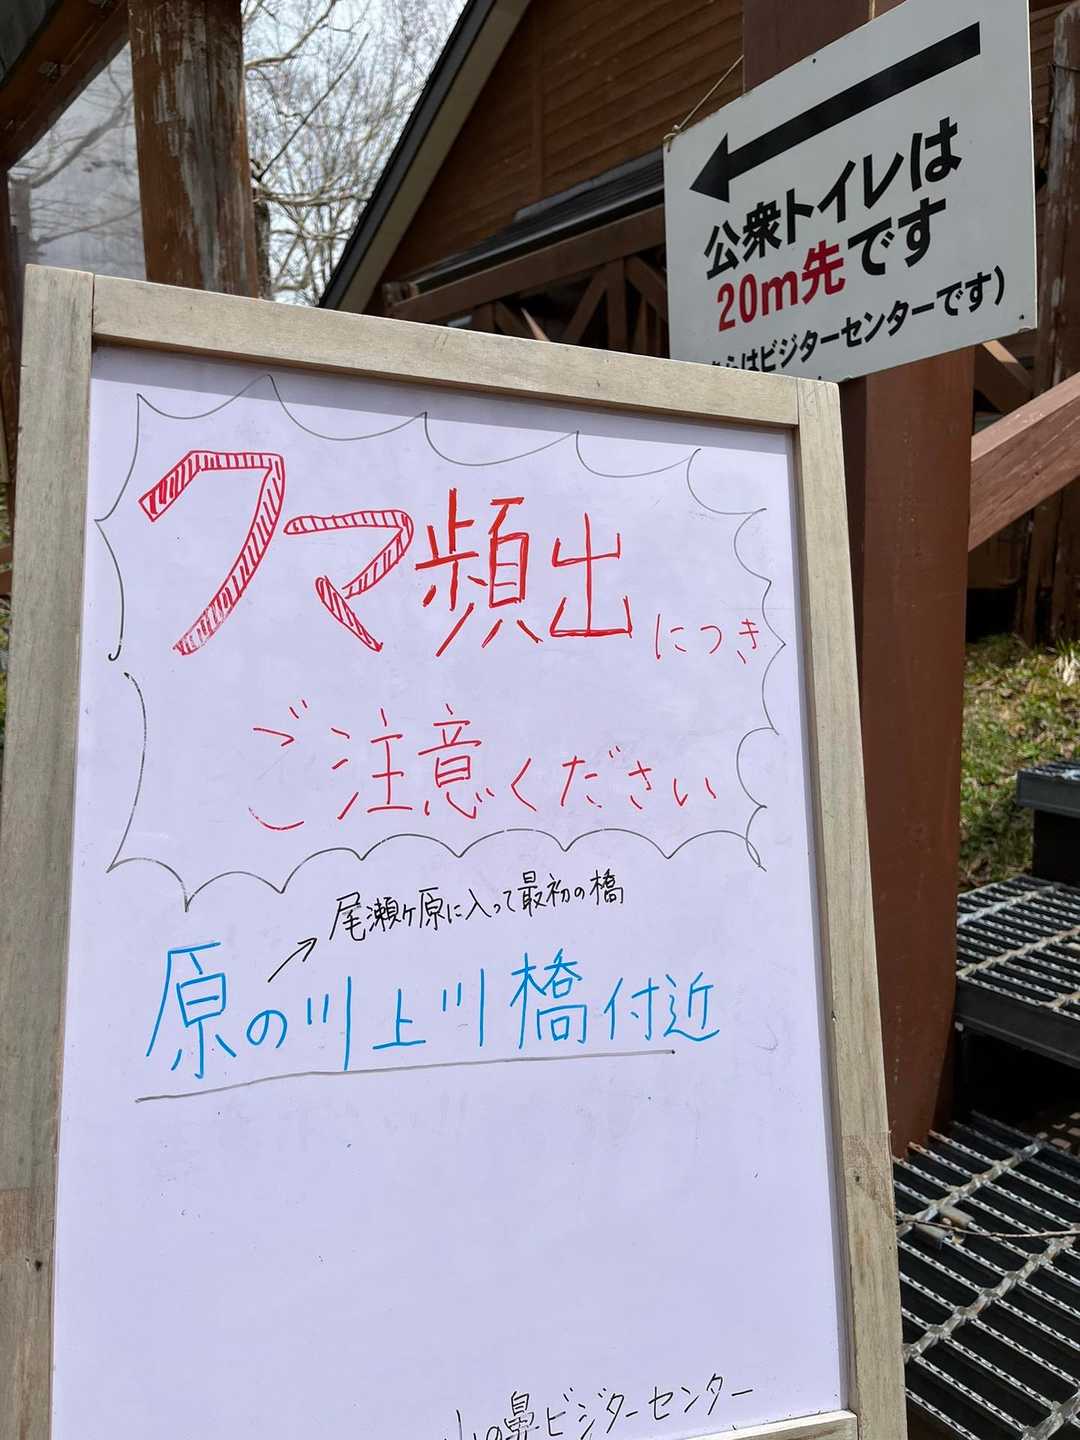 公衆トイレは
20m先です
らはビジターセンターです)
クマ頻出につき
ご注意ください
尾瀬ヶ原に入って最初の橋
原の川上川橋付近
山の鼻ビジターセンター